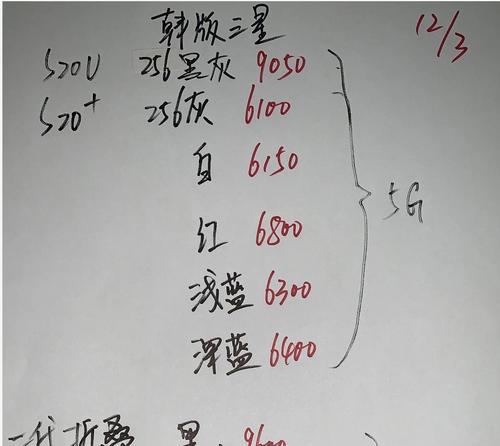 韩版三星
12/3
S20U 256黑灰 9050
S20+ 256灰 6100
白 6150
5G
红 6800
浅蓝 6300
深蓝 6400
一代折叠 黑